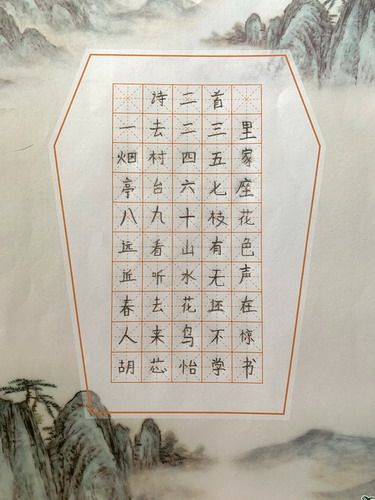 诗二首
一去二三里
烟村四五家
亭台六七座
八九十枝花
远看山有色
近听水无声
春去花还在
人来鸟不惊
胡芯怡学书